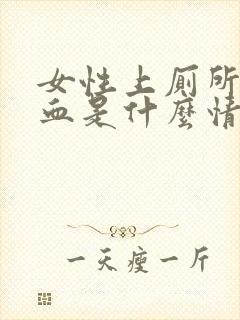 女性上厕所
血是什麼情
一天瘦一斤